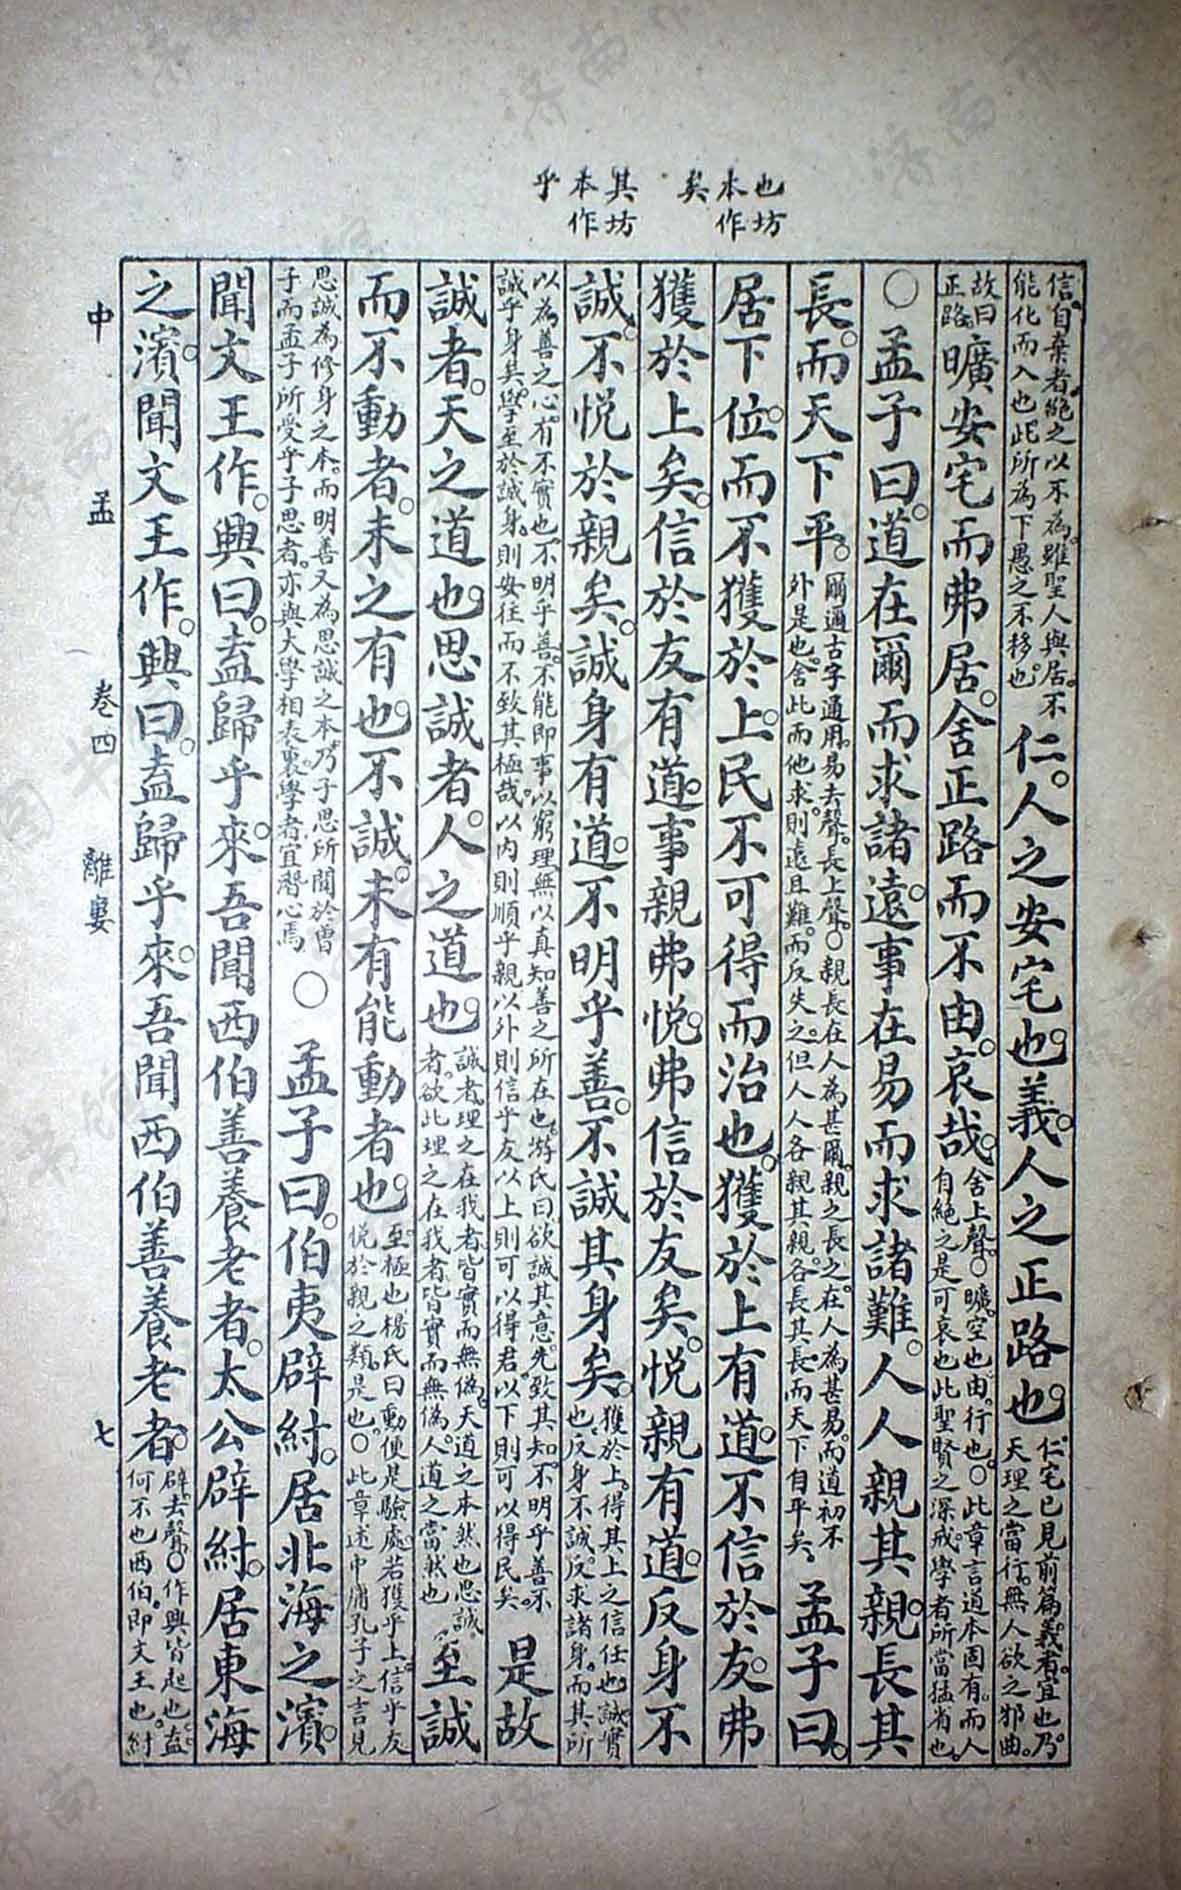 也坊本作矣
其坊本作乎
信自棄者絶之以不為雖聖人與居不能化而入也此所為下愚之不移也仁人之安宅也義人之正路也仁宅已見前篇義者宜也乃天理之當行無人欲之邪曲
故曰正路曠安宅而弗居舍正路而不由哀哉舍上聲○曠空也由行也○此章言道本固有而人自絶之是可哀也此聖賢之深戒學者所當猛省也
○孟子曰道在爾而求諸遠事在易而求諸難人人親其親長其
長而天下平爾邇古字通用易去聲長上聲○親長在人為甚爾親之長之在人為甚易而道初不外是也舍此而他求則遠且難而反失之但人人各親其親各長其長而天下自平矣孟子曰
居下位而不獲於上民不可得而治也獲於上有道不信於友弗
獲於上矣信於友有道事親弗悅弗信於友矣悅親有道反身不
誠不悅於親矣誠身有道不明乎善不誠其身矣獲於上得其上之信任也誠實也反身不誠反求諸身而其所
以為善之心有不實也不明乎善不能即事以窮理無以真知善之所在也游氏曰欲誠其意先致其知不明乎善不誠乎身矣學至於誠身則安往而不致其極哉以內則順乎親以外則信乎友以上則可以得君以下則可以得民矣是故
誠者天之道也思誠者人之道也誠者理之在我者皆實而無偽天道之本然也思誠者欲此理之在我者皆實而無偽人道之當然也至誠
而不動者未之有也不誠未有能動者也至極也楊氏曰動便是驗處若獲乎上信乎友悅於親之類是也○此章述中庸孔子之言見
思誠為修身之本而明善又為思誠之本乃子思所聞於曾子而孟子所受乎子思者亦與大學相表裏學者宜潛心焉○孟子曰伯夷辟紂居北海之濱
聞文王作興曰盍歸乎來吾聞西伯善養老者太公辟紂居東海
之濱聞文王作興曰盍歸乎來吾聞西伯善養老者辟去聲○作興皆起也盍何不也西伯即文王也紂
中孟 卷四 離婁 七